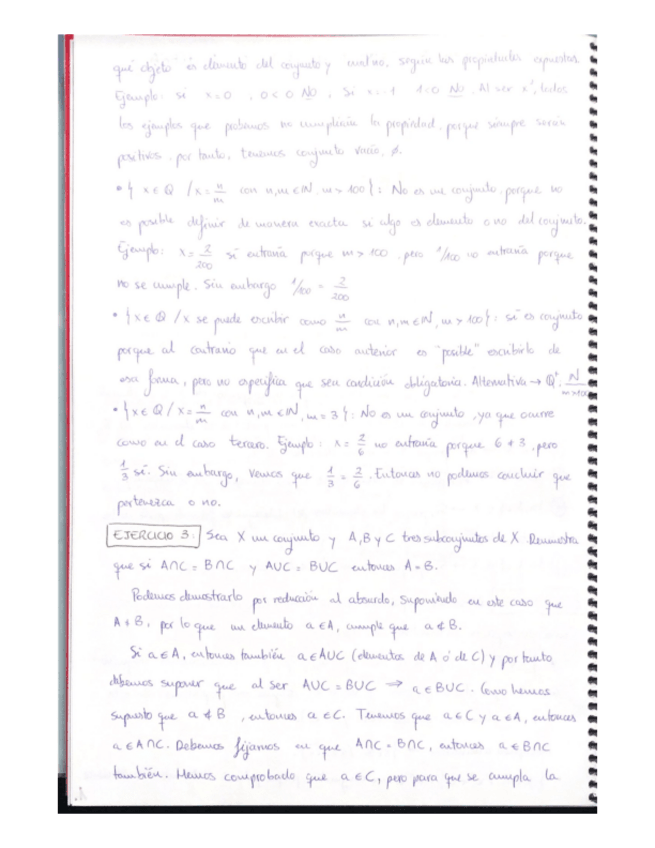 qué objeto es elemento del conjunto y cuál no, según las propiedades expuestas.
Ejemplo: si x=0 , 0<0 NO , Si x=-1 1<0 NO . Al ser x², todos
los ejemplos que probemos no cumplirían la propiedad, porque siempre serán
positivos, por tanto, tenemos conjunto vacío, ∅.
• { x ∈ Q / x = n/m con n,m ∈ N, m > 100 } : No es un conjunto, porque no
es posible definir de manera exacta si algo es elemento o no del conjunto.
Ejemplo: x = 2/200 sí entraría porque m > 100 , pero 1/100 no entraría porque
no se cumple. Sin embargo 1/100 = 2/200
• { x ∈ Q / x se puede escribir como n/m con n,m ∈ N, m > 100 } : sí es conjunto
porque al contrario que en el caso anterior es "posible" escribirlo de
esa forma, pero no especifica que sea condición obligatoria. Alternativa → Q⁺, N/m>100
• { x ∈ Q / x = n/m con n,m ∈ N, m = 3 } : No es un conjunto, ya que ocurre
como en el caso tercero. Ejemplo : x = 2/6 no entraría porque 6 ≠ 3 , pero
1/3 sí. Sin embargo, vemos que 1/3 = 2/6 . Entonces no podemos concluir que
pertenezca o no.
EJERCICIO 3. Sea X un conjunto y A, B y C tres subconjuntos de X. Demuestra
que si A∩C = B∩C y A∪C = B∪C entonces A = B.
Podemos demostrarlo por reducción al absurdo, suponiendo en este caso que
A ≠ B, por lo que un elemento a ∈ A, cumple que a ∉ B.
Si a ∈ A, entonces también a ∈ A∪C (elementos de A ó de C) y por tanto
debemos suponer que al ser A∪C = B∪C → a ∈ B∪C. Como hemos
supuesto que a ∉ B , entonces a ∈ C. Tenemos que a ∈ C y a ∈ A, entonces
a ∈ A∩C. Debemos fijarnos en que A∩C = B∩C, entonces a ∈ B∩C
también. Hemos comprobado que a ∈ C, pero para que se cumpla la